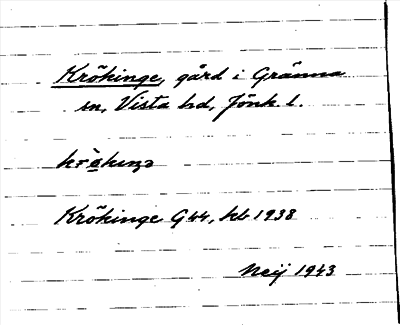 Krökinge, gård i Gränna
sn, Vista hd, Jönk l.
Krökinge G44, kb 1938
Neij 1943